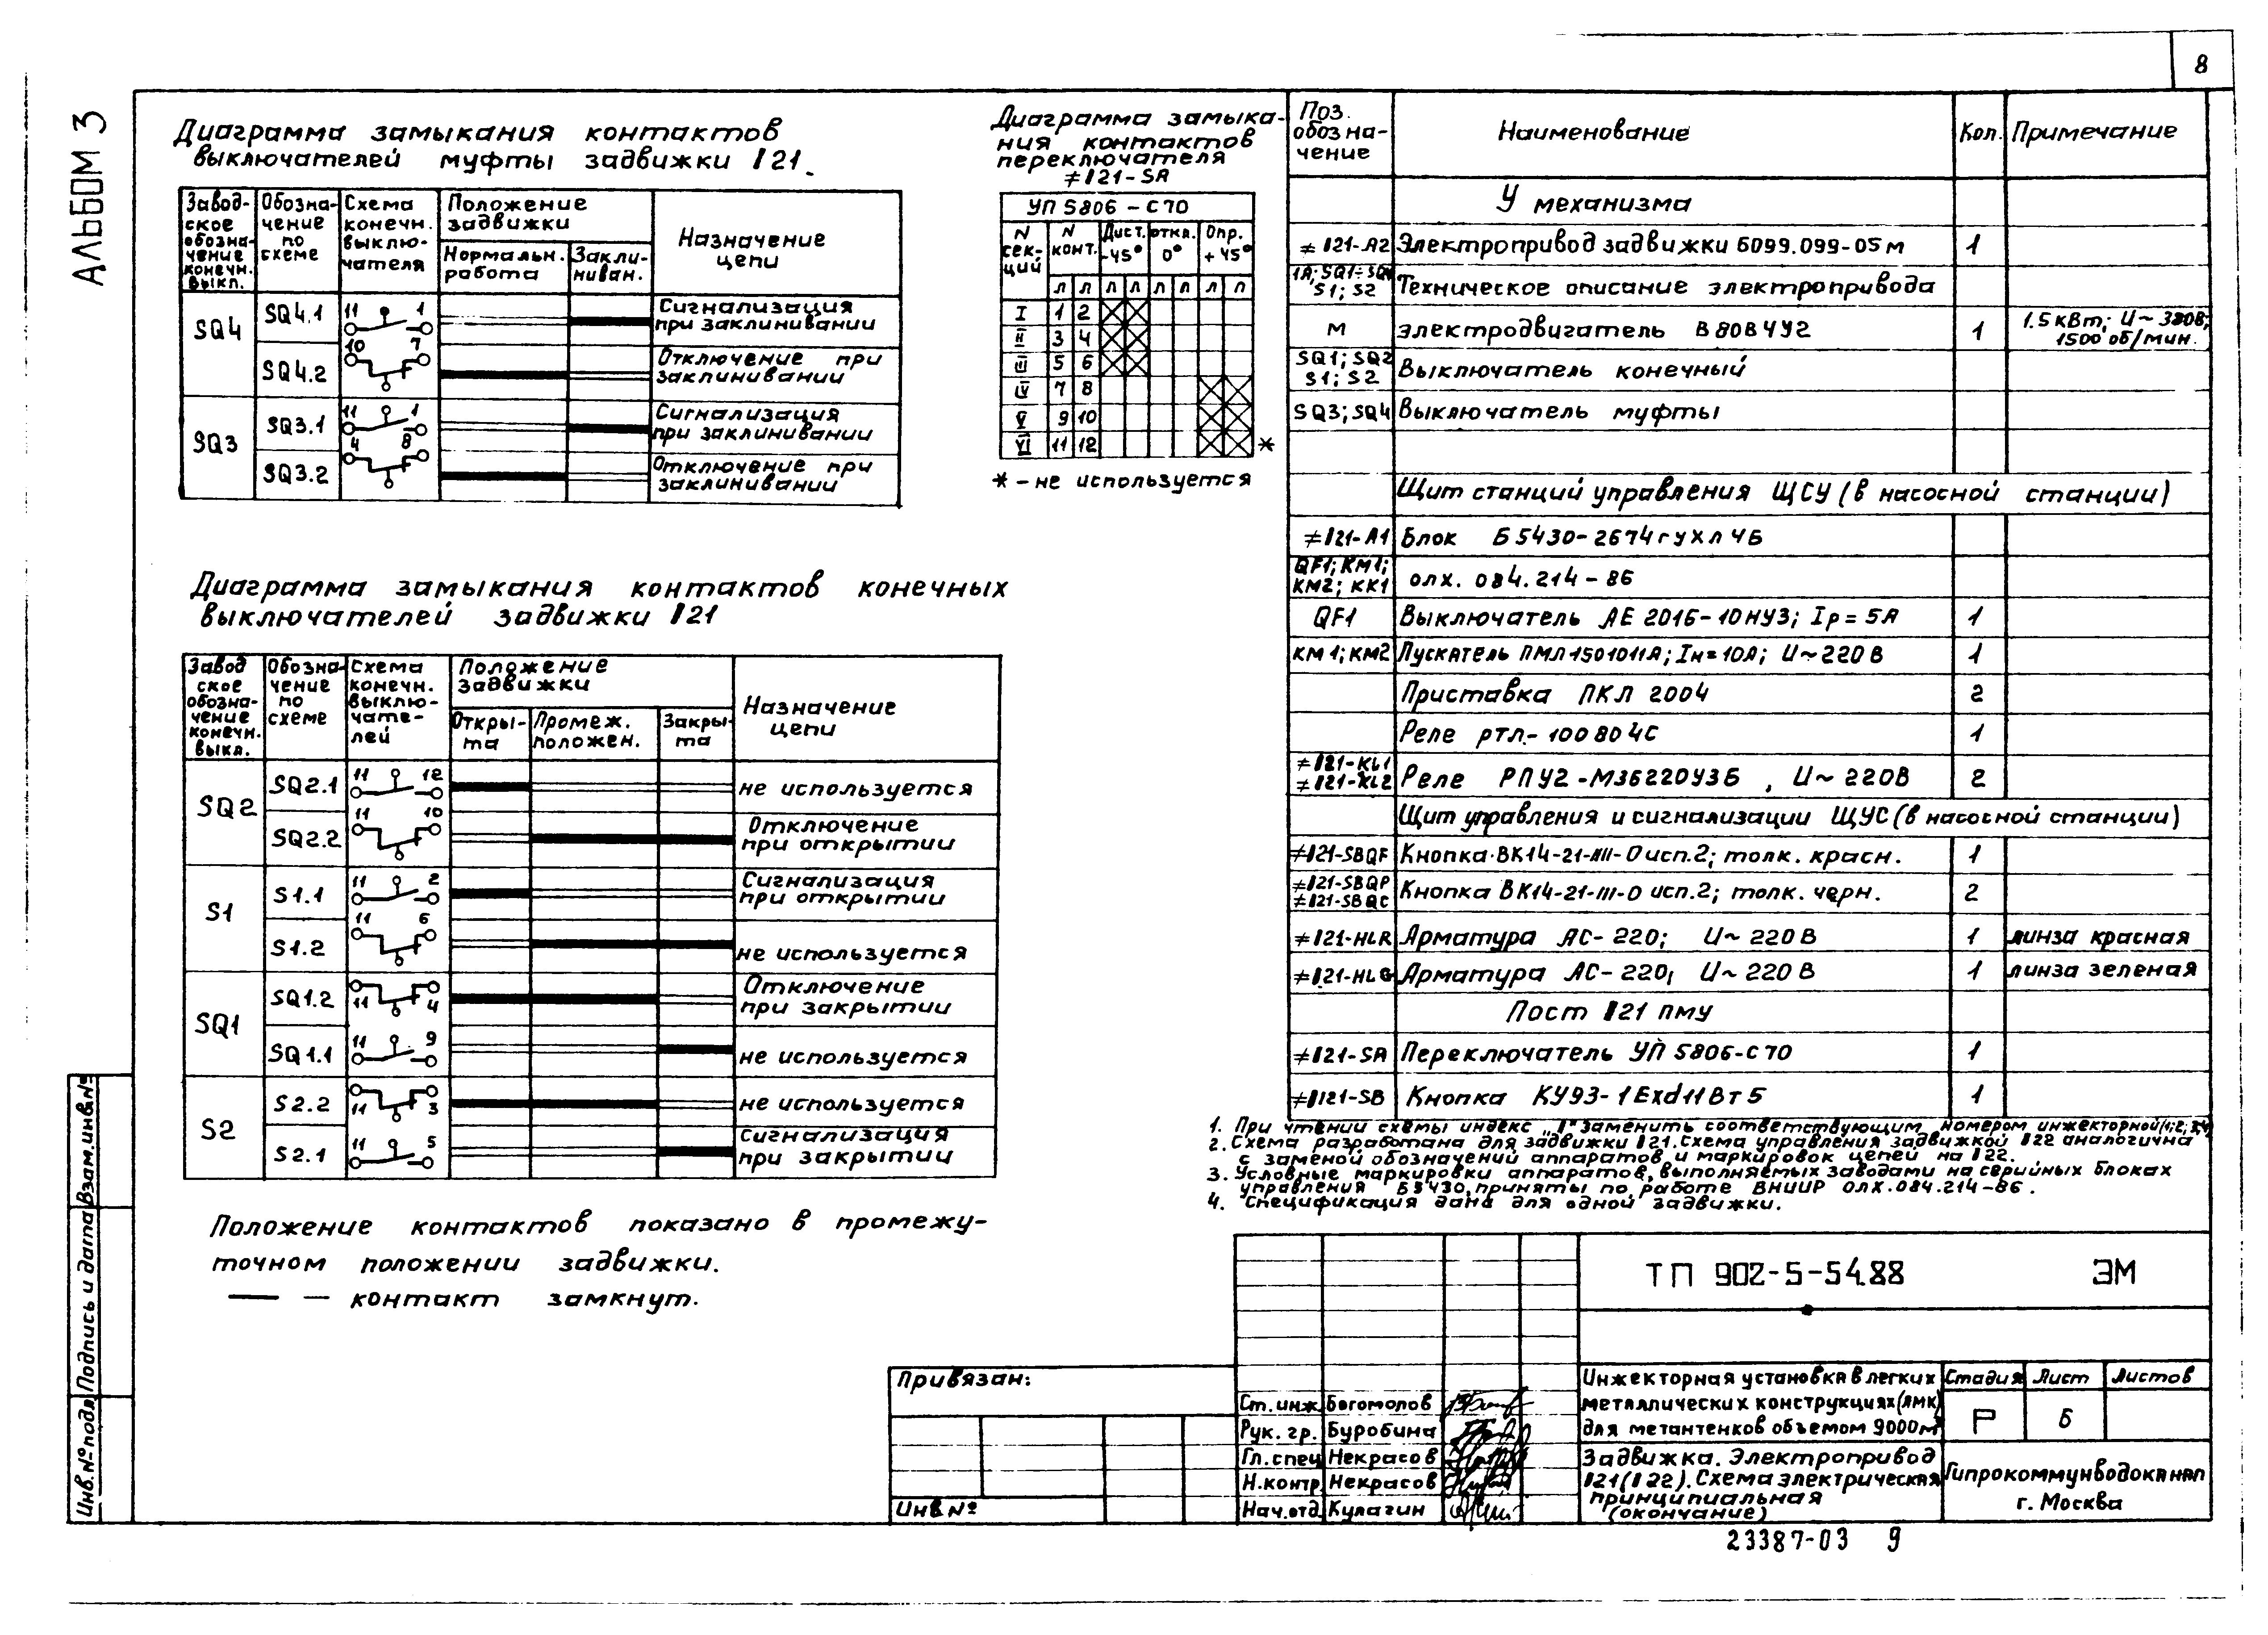 8
АЛЬБОМ 3
Диаграмма замыкания контактов
выключателей муфты задвижки 121.
Завод-
ское
обозна-
чение
конечн.
выкл.
Обозна-
чение
по
схеме
Схема
конечн.
выклю-
чателя
Положение
задвижки
Нормальн.
работа
Закли-
ниван.
Назначение
цепи
SQ4
SQ4.1
11 1
Сигнализация
при заклинивании
SQ4.2
10 7
Отключение при
заклинивании
SQ3
SQ3.1
11 1
Сигнализация
при заклинивании
SQ3.2
4 8
Отключение при
заклинивании
Диаграмма замыка-
ния контактов
переключателя
≠121-SA
УП 5806 - С70
N
сек-
ций
N
конт.
Дист.
-45°
откл.
0°
Опр.
+45°
Л Л Л П Л П Л П
I 1 2
II 3 4
III 5 6
IV 7 8
V 9 10
VI 11 12 *
* - не используется
Диаграмма замыкания контактов конечных
выключателей задвижки 121
Завод
ское
обозна-
чение
конечн.
выкл.
Обозна-
чение
по
схеме
Схема
конечн.
выклю-
чате-
лей
Положение
задвижки
Откры-
та
Промеж.
положен.
Закры-
та
Назначение
цепи
SQ2
SQ2.1 11 12 не используется
SQ2.2 11 10 Отключение
при открытии
S1
S1.1 11 2 Сигнализация
при открытии
S1.2 11 6 не используется
SQ1
SQ1.2 11 4 Отключение
при закрытии
SQ1.1 11 9 не используется
S2
S2.2 11 3 не используется
S2.1 11 5 Сигнализация
при закрытии
Положение контактов показано в промежу-
точном положении задвижки.
— контакт замкнут.
Поз.
обозна-
чение
Наименование
Кол.
Примечание
У механизма
≠121-А2 Электропривод задвижки Б099.099-05м 1
S1; S2 Техническое описание электропривода
М электродвигатель В80В4У2 1 1.5 кВт; U~380В;
1500 об/мин.
SQ1; SQ2
S1; S2 Выключатель конечный
SQ3; SQ4 Выключатель муфты
Щит станций управления ЩСУ (в насосной станции)
≠121-А1 Блок Б5430-2674гухл4Б
QF1; KM1;
KM2; KK1 олх. 084.214-86
QF1 Выключатель АЕ 2016-10НУ3; Iр=5А 1
KM1; KM2 Пускатель ПМЛ1501011А; Iн=10А; U~220В 1
Приставка ПКЛ 2004 2
Реле ртл-100804С 1
≠121-KL1
≠121-KL2 Реле РПУ2-М36220У3Б, U~220В 2
Щит управления и сигнализации ЩУС (в насосной станции)
≠121-SBQF Кнопка ВК14-21-III-0 исп.2; толк. красн. 1
≠121-SBQP
≠121-SBQC Кнопка ВК14-21-III-0 исп.2; толк. черн. 2
≠121-HLR Арматура АС-220; U~220В 1 линза красная
≠121-HLG Арматура АС-220; U~220В 1 линза зеленая
Пост 121 пму
≠121-SA Переключатель УП 5806-С70 1
≠121-SB Кнопка КУ93-1ExdIIBT5 1
1. При чтении схемы индекс „1" заменить соответствующим номером инжекторной
2. Схема разработана для задвижки 121. Схема управления задвижкой 122 аналогична
с заменой обозначений аппаратов и маркировок цепей на 122.
3. Условные маркировки аппаратов, выполняемых заводами на серийных блоках
управления Б5430, приняты по работе ВНИИР ОЛХ.084.214-86.
4. Спецификация дана для одной задвижки.
ТП 902-5-54.88 ЭМ
Привязан:
Инв №
Ст. инж. Богомолов
Рук. гр. Буробина
Гл. спец. Некрасов
Н. контр. Некрасов
Нач. отд. Кулагин
Инжекторная установка в легких
металлических конструкциях (ЛМК)
для метантенков объемом 9000м³
Стадия Лист Листов
Р 6
Задвижка. Электропривод
121(122). Схема электрическая
принципиальная
(окончание)
Гипрокоммунводоканал
г. Москва
Инв. № подл. Подпись и дата Взам. инв. №
23387-03 9